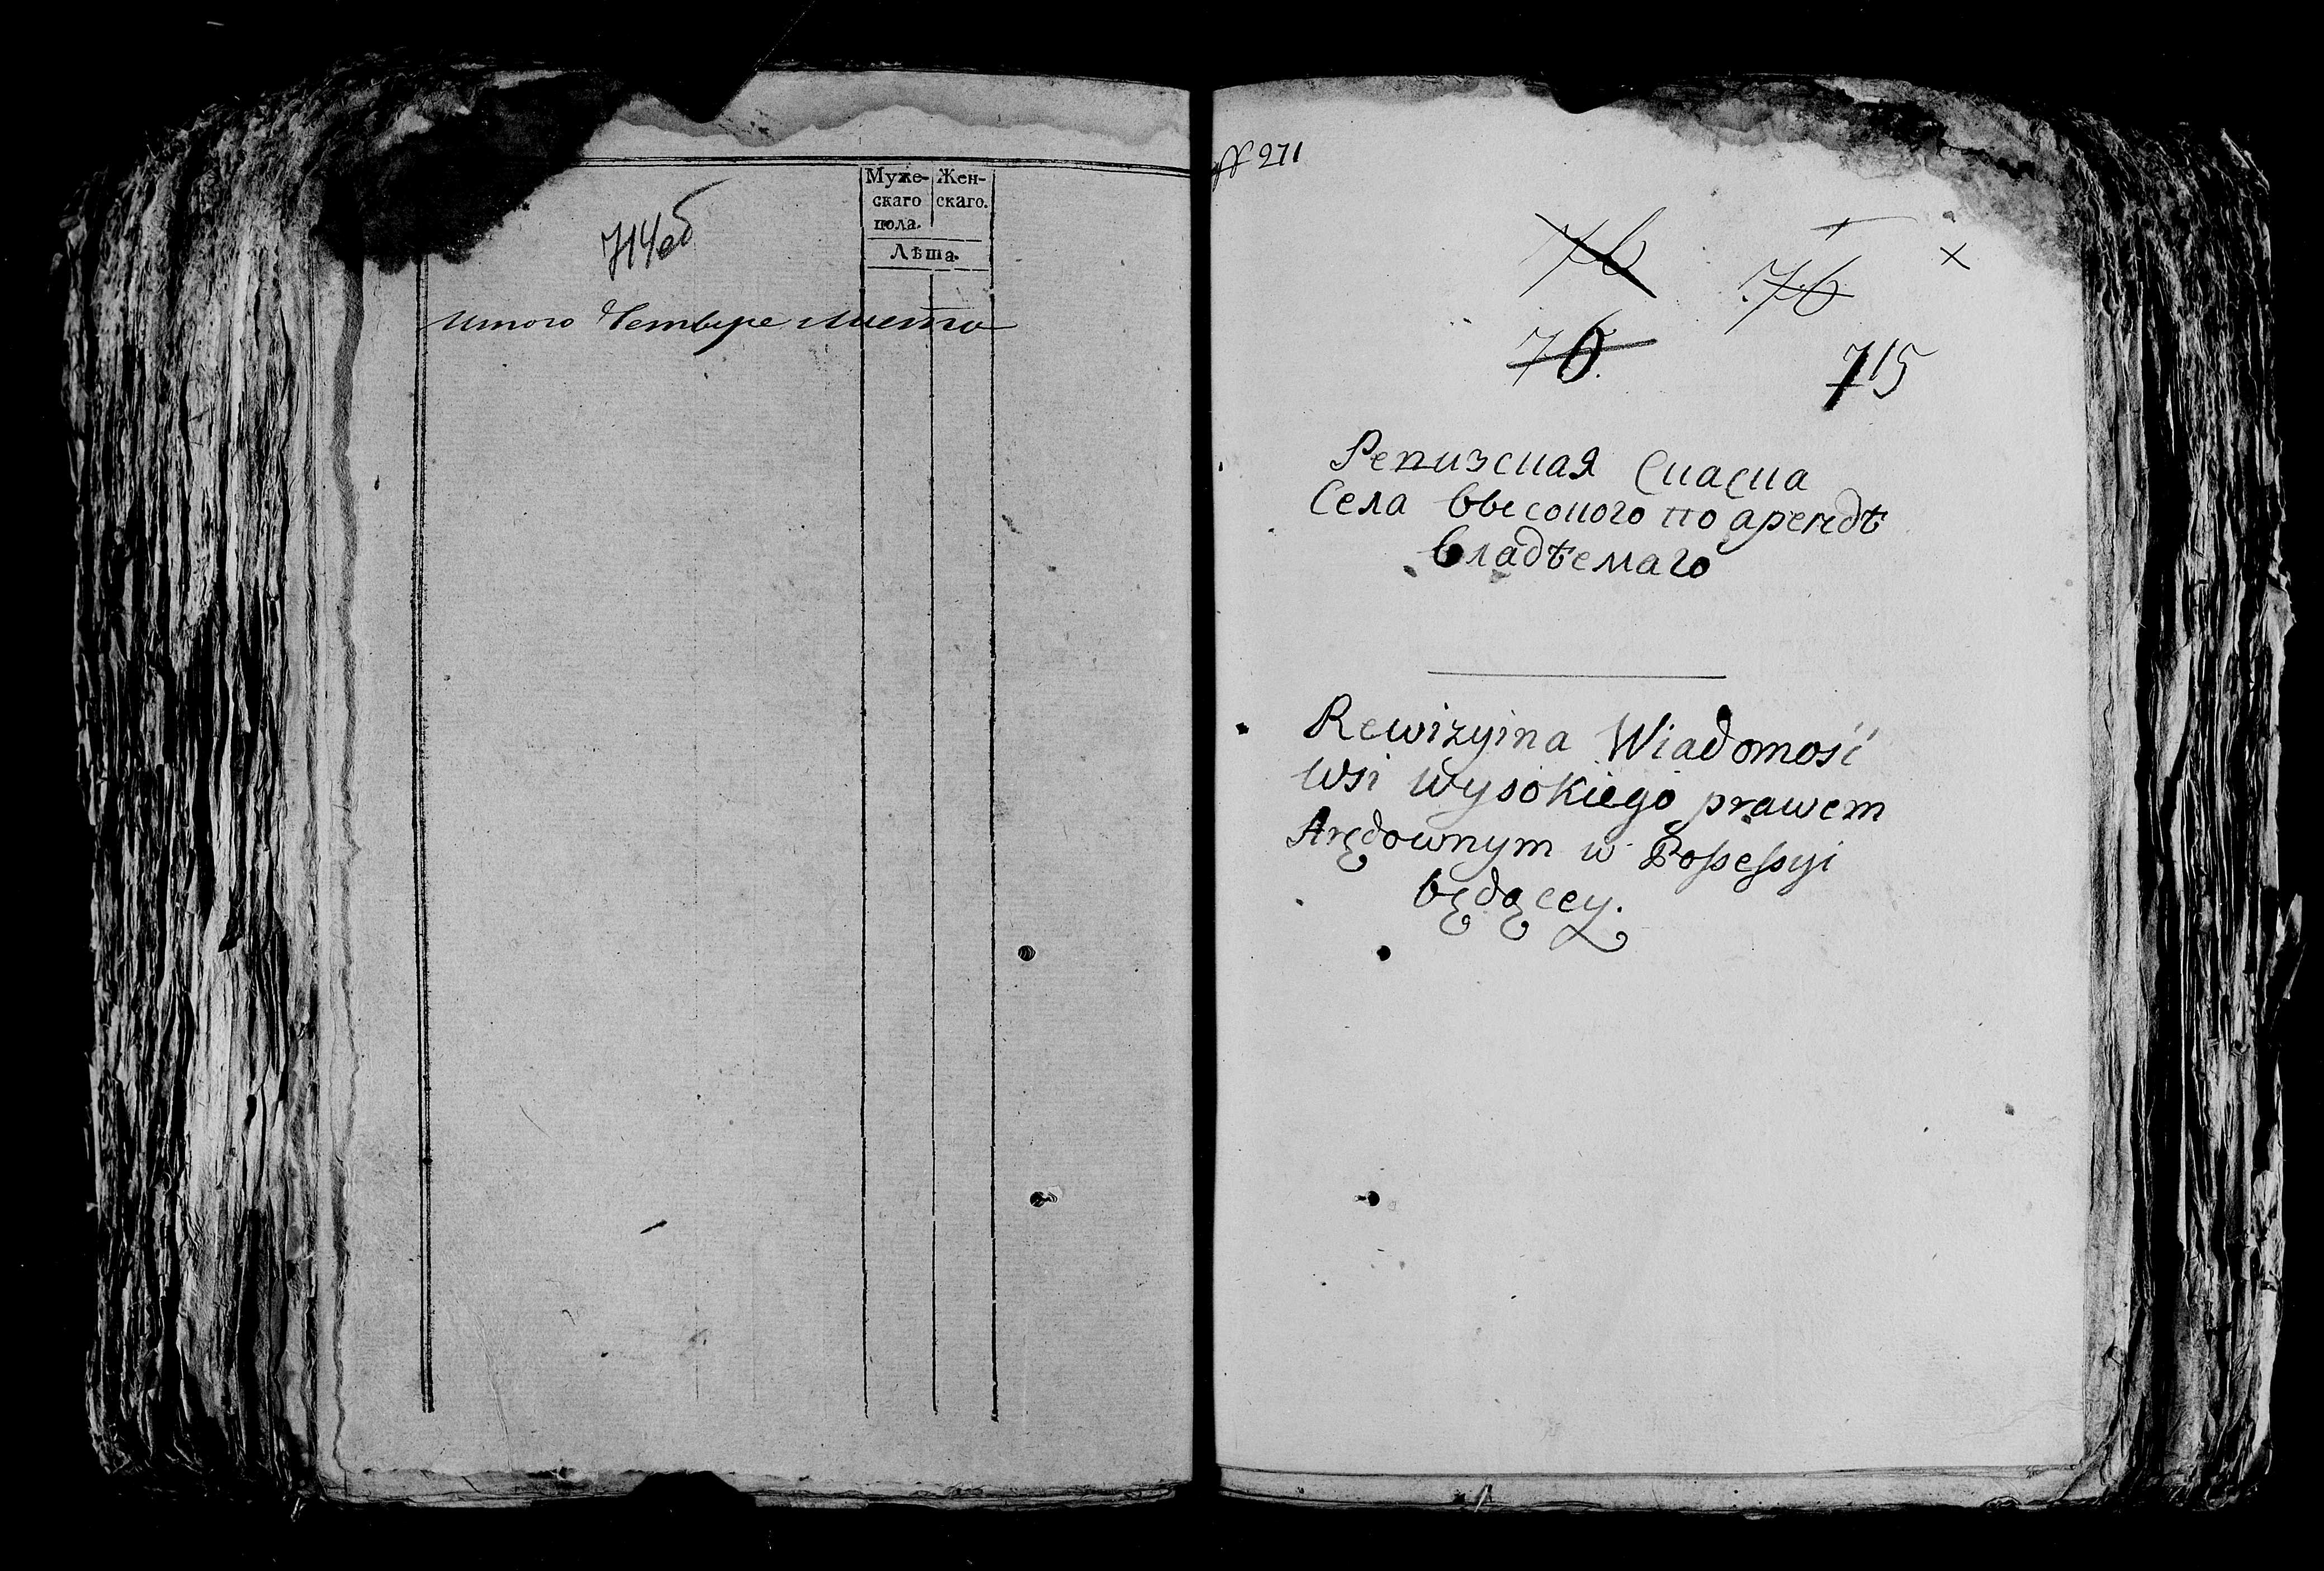 714об
Муже-
скаго
пола.
Жен-
скаго.
Лѣта.
Итого Четыре листа
271
76
76
76
715
Ревизская Сказка
Села Высокого по арендѣ
владѣемаго
Rewizyina Wiadomość
Wsi wysokiego prawem
Arędownym w Possessyi
będącey.